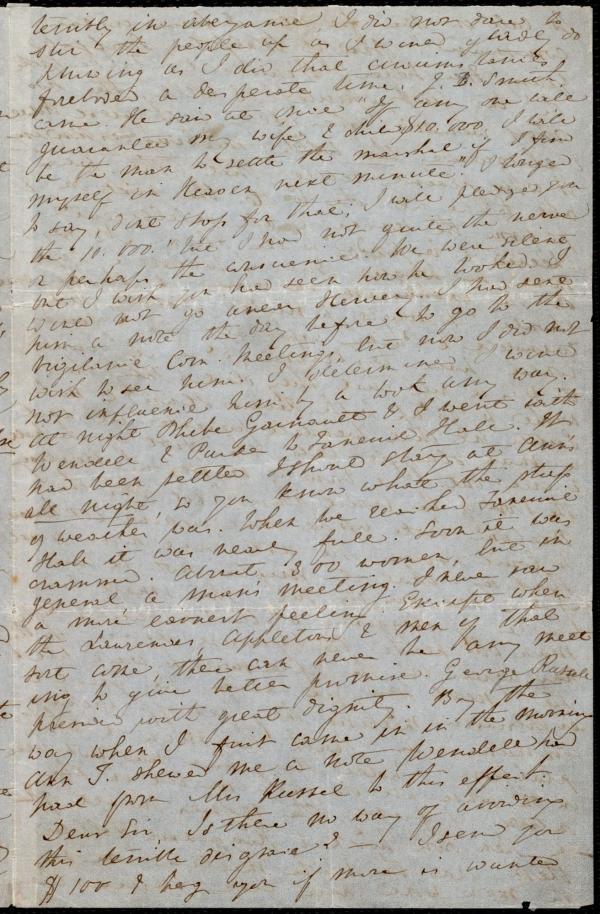 terribly in abeyance I did not dare to
stir the people up as I would gladly do
knowing as I did that circumstances
forebode a desperate time. J. B. Smith
came. He said at once "If any one will
guarantee my wife & child $10.000. I will
be the man to settle the marshal if I find
myself in Heaven next minute." I longed
to say, dont stop for that, I will pledge you
the 10.000. but I had not quite the nerve
or perhaps the conscience. We were silent
but I wish you had seen how he looked. I
would not go near Hervey. I had sent
him a note the day before to go to the
Vigilance Com Meeting, but now I did not
wish to see him. I determined I would
not influence him by a look any way.
At night Phebe Garnautt & I went with
Wendell & Parker to Faneuil Hall. It
had been settled I should stay at Ann's
all night, so you know what the stress
of weather was. When we reached Faneuil
Hall it was nearly full. Soon it was
crammed. About 300 women, but in
general a mans meeting. I never saw
a more earnest feeling. Except when
the Lawrences, Appletons & men of that
sort come, there can never be any meet
ing to give better promise. George Russell
presided with great dignity. By the
way when I first came in in the morning
Ann T. shewed me a note Wendell had
had from Mrs Russel to this effect.
Dear Sir Is there no way of avoiding
this terrible disgrace? — I send you
$100 & beg you if more is wanted